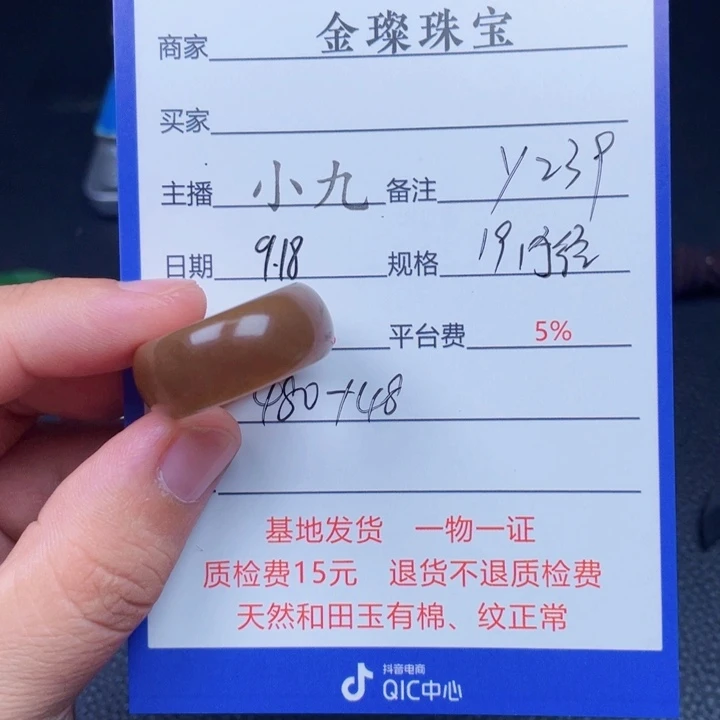 商家 金璨珠宝
买家
主播 小九 备注 Y239
日期 9.18 规格 19内径
平台费 5%
480+48
基地发货 一物一证
质检费15元 退货不退质检费
天然和田玉有棉、纹正常
抖音电商
QIC中心